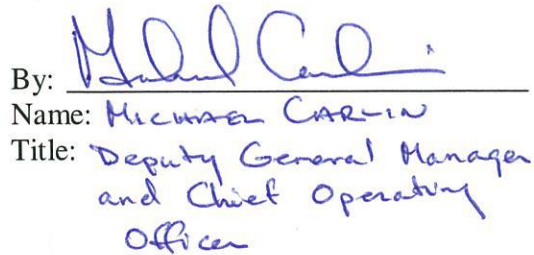 By: Michael Carlin
Name: MICHAEL CARLIN
Title: Deputy General Manager
and Chief Operating
Officer